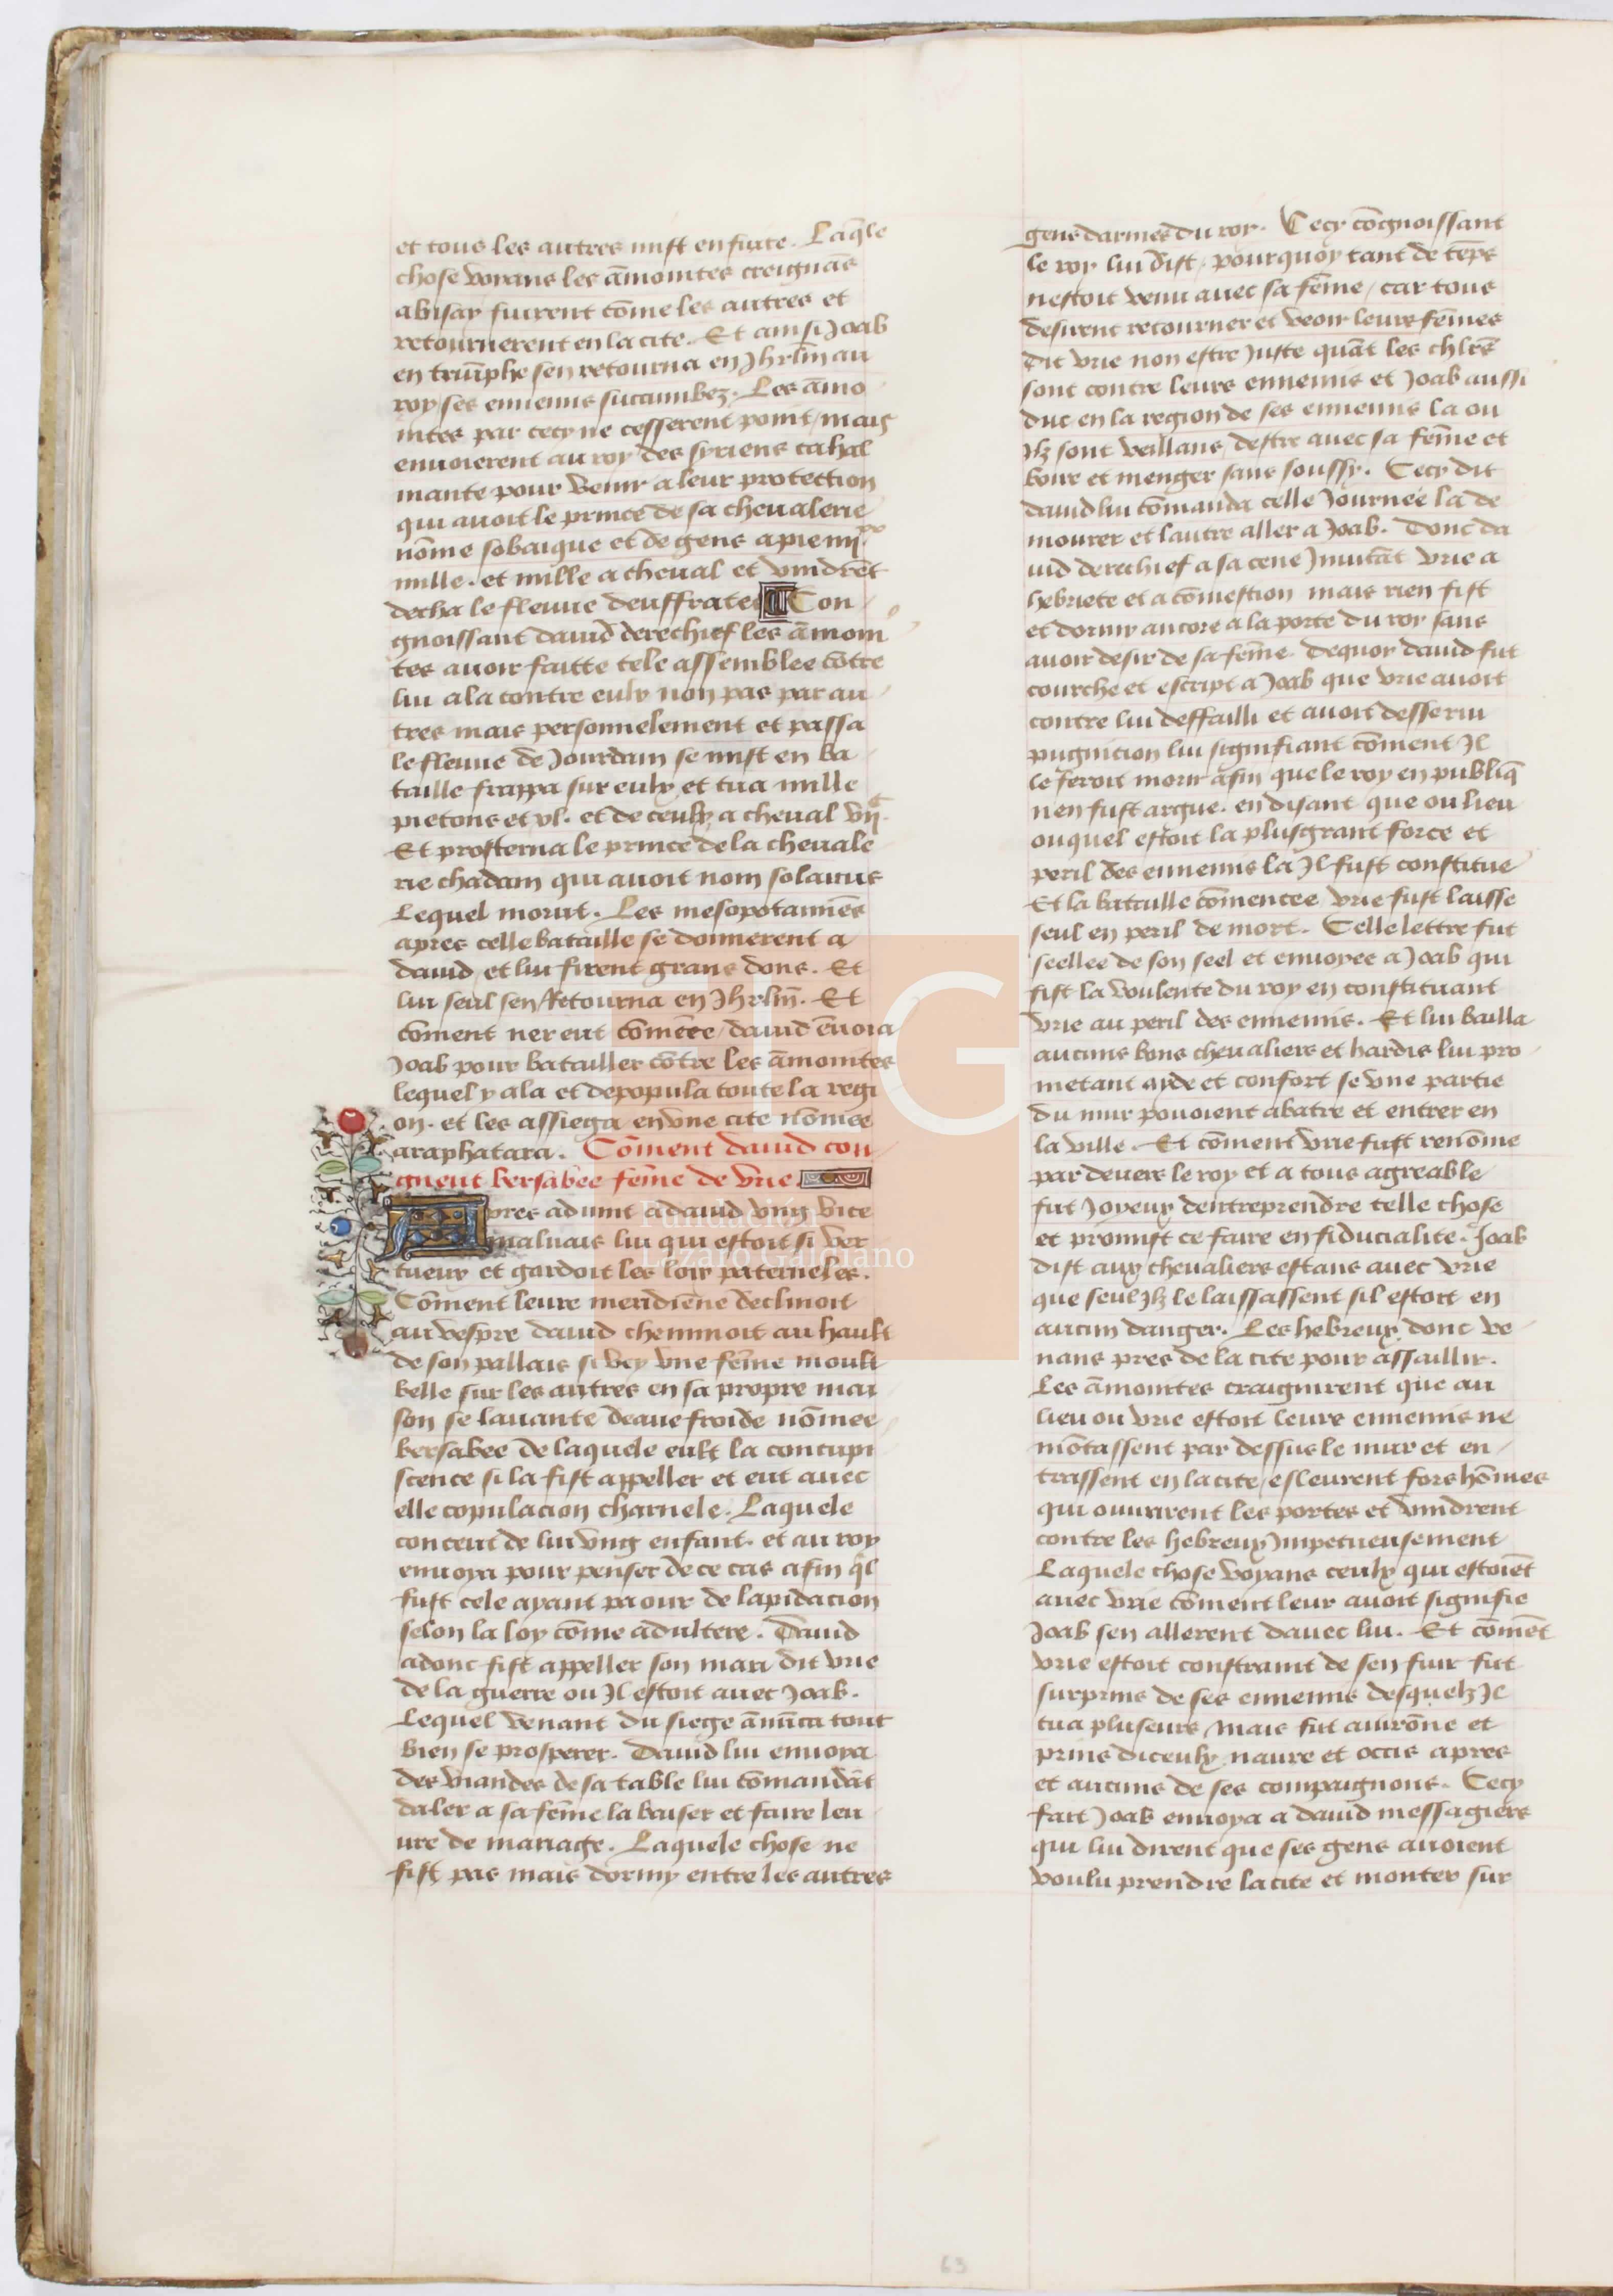 et tous les autres mist en fuite. Laq̄le
chose voyans les āmonites creignās
abisay fuirent cōme les autres et
retournerent en la cite. Et ainsi Joab
en triūphe sen retourna en Jhrlm̄ au
roy ses ennemis succumbez. Les āmo
nites par cecy ne cesserent point / mais
envoierent au roy des syriens cahal
mante pour venir a leur protection
qui avoit le prince de sa chevalerie
nōme sobaique et de gens a pie iiijxx
mille. et mille a cheval et vindrēt
decha le fleuve deuffrates Con
gnoissant david derechief les āmoni
tes avoir faitte tele assemblee cōtre
lui ala contre eulx non pas par au
tres mais personnelement et passa
le fleuve de Jourdain se mist en ba
taille frappa sur eulx et tua mille
pietons et xl. et de ceulx a cheval vijc.
Et prosterna le prince de la chevale
rie chadam qui avoit nom solatius
Lequel morut. Les mesopotamiēs
apres celle bataille se donnerent a
david et lui firent grans dons. Et
lui seul sen Retourna en Jhrlm̄. Et
cōment ner eut cōmēce / david ēvoia
Joab pour batailler cōtre les āmonites
lequel y ala et depopula toute la regi
on. et les assiega en vne cite nōmee
araphatara. Cōment david con
gneut bersabee fēme de vrie
Apres advint a david vng vice
malvais lui qui estoit si ver
tueux et gardoit les loix paterneles.
Cōment leure meridiēne declinoit
au vespre david cheminoit au hault
de son pallais si vey vne fēme moult
belle sur les autres en sa propre mai
son se lavante deaue froide nōmee
bersabee de laquele eult la concupi
scence si la fist appeller et eut avec
elle copulacion charnele. Laquele
conceut de lui vng enfant. et au roy
envoya pour penser de ce cas afin q̄l
fust cele ayant paour de lapidacion
selon la loy cōme adultere. David
adonc fist appeller son mari dit vrie
de la guerre ou Jl estoit avec Joab.
Lequel venant du siege ānūca tout
bien se prosperer. David lui envoya
des viandes de sa table lui cōmandāt
daler a sa fēme la baiser et faire leu
vre de mariage. Laquele chose ne
fist pas mais dormy entre les autres
gens darmes du roy. Cecy cōgnoissant
le roy lui dist / pourquoy tant de tēps
nestoit venu avec sa fēme / car tous
desirent retourner et veoir leurs fēmes
Dit vrie non estre Juste quāt les chlrs̄
sont contre leurs ennemis et Joab aussi
duc en la region de ses ennemis la ou
Jlz sont veillans / destre avec sa fēme et
boire et menger sans soussy. Cecy dit
david lui cōmanda celle Journee la de
mourer et lautre aller a Joab. Donc da
vid derechief a sa cene Jnvitāt vrie a
hebriete et a cōmestion mais rien fist
et dormy ancore a la porte du roy sans
avoir desir de sa fēme dequoy david fut
courche et escript a Joab que vrie avoit
contre lui deffailli et avoit desservi
pugnicion lui signifiant cōment Jl
le feroit morir afin que le roy en publiq̄
n'en fust argue. en disant que ou lieu
ouquel estoit la plusgrant force et
peril des ennemis la Jl fust constitue
Et la bataille cōmencee vrie fust laisse
seul en peril de mort. Celle lettre fut
seellee de son seel et envoyee a Joab qui
fist la voulente du roy en constituant
vrie au peril des ennemis. Et lui bailla
aucuns bons chevaliers et hardis lui pro
metant ayde et confort se vne partie
du mur pouoient abatre et entrer en
la ville. Et cōment vrie fust renōme
par devers le roy et a tous agreable
fut Joyeux dentreprendre telle chose
et promist ce faire en fiducialite. Joab
dist aux chevaliers estans avec vrie
que seul Jlz le laissassent sil estoit en
aucun danger. Les hebreux donc ve
nans pres de la cite pour assaillir.
Les āmonites craignirent que au
lieu ou vrie estoit leurs ennemis ne
mōtassent par dessus le mur et en
trassent en la cite / esleurent fors hōmes
qui ouvrirent les portes et vindrent
contre les hebreux Jmpetueusement
Laquele chose voyans ceulx qui estoiēt
avec vrie cōment leur avoit signifie
Joab sen allerent davec lui. Et cōmēt
vrie estoit constraint de sen fuir fut
surprins de ses ennemis desquelz Jl
tua pluseurs / mais fut avirōne et
prins diceulx navre et occis apres
et aucuns de ses compaignons. Cecy
fait Joab envoya a david messagiers
qui lui dirent que ses gens avoient
voulu prendre la cite et monter sur
Fundación
Lázaro Galdiano
63